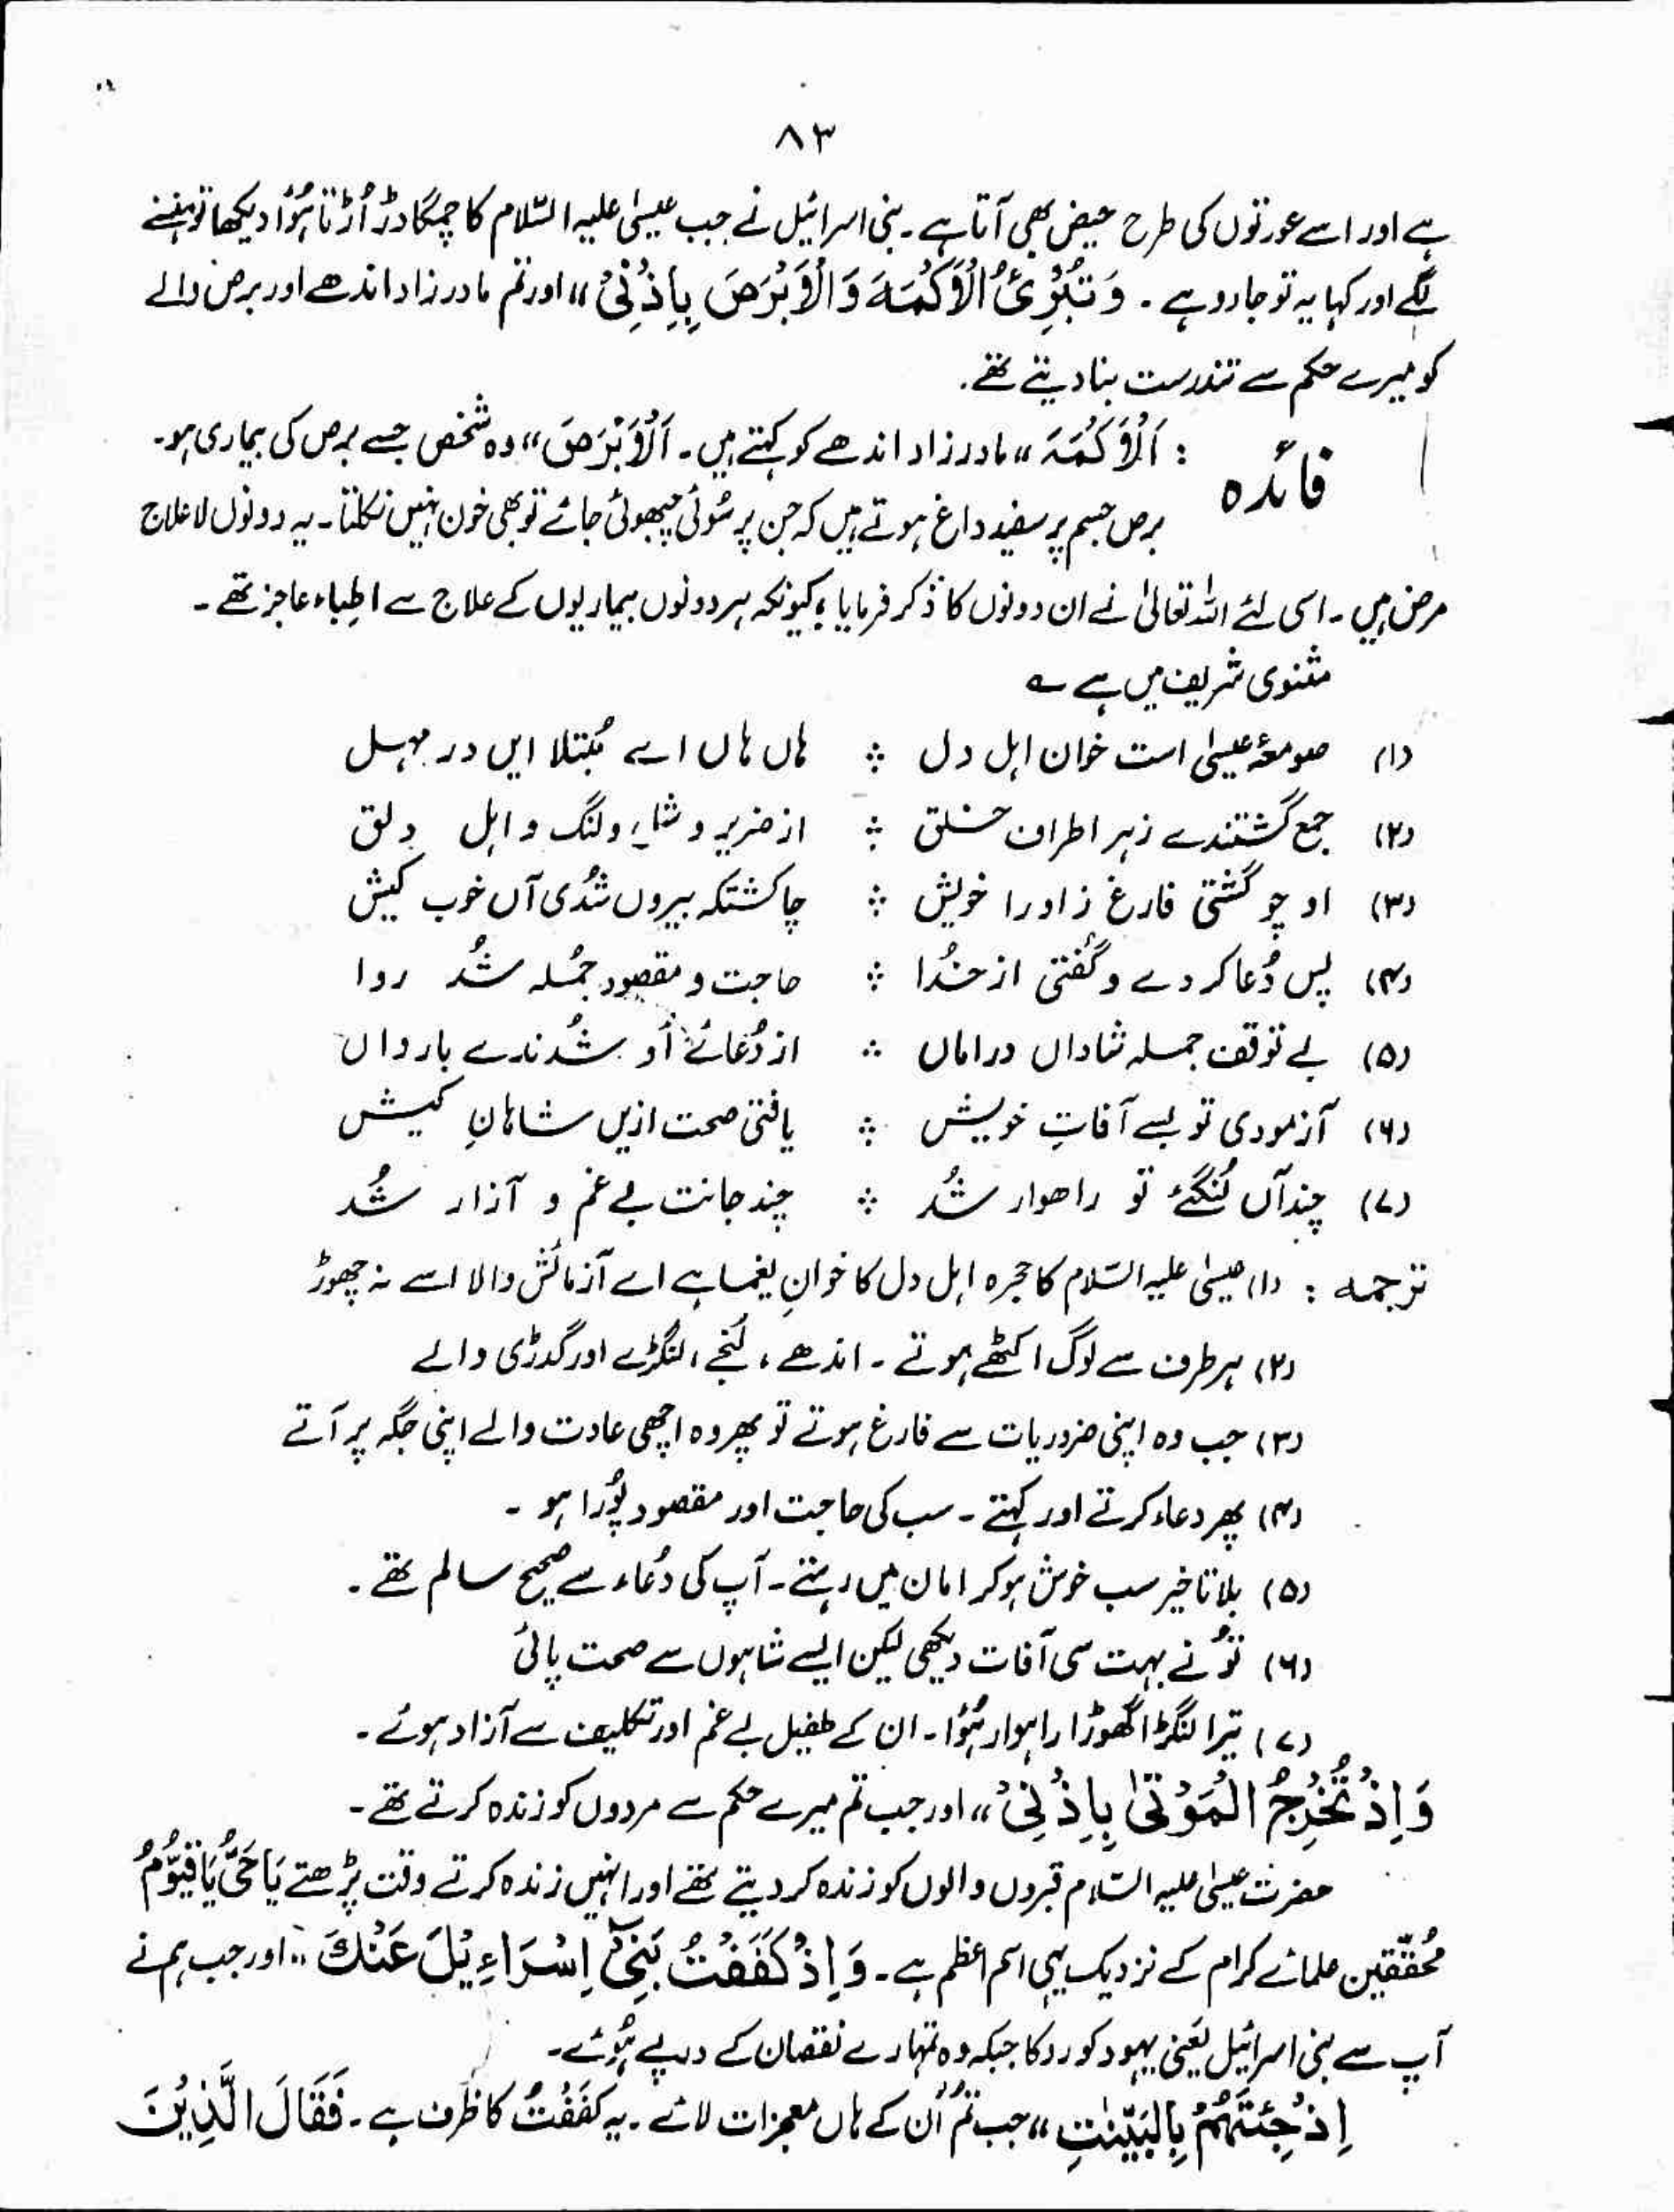 ۸۳
ہے اور اسے عورتوں کی طرح حیض بھی آتا ہے۔ بنی اسرائیل نے جب عیسیٰ علیہ السّلام کا چمگادڑ اُڑتا ہُؤا دیکھا تو ہنسنے
لگے اور کہا یہ تو جادو ہے ۔ وَتُبْرِئُ الْاَكْمَهَ وَالْاَبْرَصَ بِاِذْنِیْ ،، اور تم مادر زاد اندھے اور برص والے
کو میرے حکم سے تندرست بنا دیتے تھے۔
فائدہ : اَلْاَكْمَهَ ،، مادر زاد اندھے کو کہتے ہیں ۔ اَلْاَبْرَصَ ،، وہ شخص جسے برص کی بیماری ہو۔
برص جسم پر سفید داغ ہوتے ہیں کہ جن پر سُوئی چبھوئی جائے تو بھی خون نہیں نکلتا ۔ یہ دونوں لاعلاج
مرض ہیں ۔ اسی لئے اللہ تعالیٰ نے ان دونوں کا ذکر فرمایا ؛ کیونکہ ہر دونوں بیماریوں کے علاج سے اطباء عاجز تھے ۔
مثنوی شریف میں ہے ؎
(۱) صومعۂ عیسیٰ است خوان اہل دل ؞ ہاں ہاں اے مُبتلا ایں در مہل
(۲) جمع گشتندے زہر اطراف خلق ؞ از ضریر و شل و لنگ و اہل دلق
(۳) او چو گشتی فارغ ز اوراد خویش ؞ چاشتگہ بیروں شُدی آں خوب کیش
(۴) پس دُعا کر دے و گفتی از خُدا ؞ حاجت و مقصود جُملہ شُد روا
(۵) بے توقف جملہ شاداں در اماں ؞ از دُعائے اُو شُدندے با رواں
(۶) آزمودی تو بسے آفاتِ خویش ؞ یافتی صحت ازیں شاہانِ کیش
(۷) چند آں لُنگئ تو راهوار شُد ؞ چند جانت بے غم و آزار شُد
ترجمہ : (۱) عیسیٰ علیہ السّلام کا حجرہ اہل دل کا خوانِ یغما ہے اے آزمائش والا اسے نہ چھوڑ
(۲) ہر طرف سے لوگ اکٹھے ہوتے ۔ اندھے ، لُنجے ، لنگڑے اور گدڑی والے
(۳) جب وہ اپنی ضروریات سے فارغ ہوتے تو پھر وہ اچھی عادت والے اپنی جگہ پر آتے
(۴) پھر دعاء کرتے اور کہتے ۔ سب کی حاجت اور مقصود پُورا ہو ۔
(۵) بلا تاخیر سب خوش ہو کر امان میں رہتے ۔ آپ کی دُعاء سے صحیح سالم تھے ۔
(۶) تُو نے بہت سی آفات دیکھی لیکن ایسے شاہوں سے صحت پائی
(۷) تیرا لنگڑا گھوڑا راہوار ہُؤا ۔ ان کے طفیل بے غم اور تکلیف سے آزاد ہوئے ۔
وَاِذْ تُخْرِجُ الْمَوْتٰی بِاِذْنِیْ ،، اور جب تم میرے حکم سے مردوں کو زندہ کرتے تھے ۔
حضرت عیسیٰ علیہ السّلام قبروں والوں کو زندہ کر دیتے تھے اور انہیں زندہ کرتے وقت پڑھتے یَاحَیُّ یَاقَیُّوْمُ
مُحقّقین علمائے کرام کے نزدیک یہی اسم اعظم ہے ۔ وَاِذْ كَفَفْتُ بَنِیْٓ اِسْرَاءِیْلَ عَنْكَ ،، اور جب ہم نے
آپ سے بنی اسرائیل یعنی یہود کو روکا جبکہ وہ تمہارے نقصان کے درپے ہُوئے ۔
اِذْ جِئْتَهُمْ بِالْبَیِّنٰتِ ،، جب تُم اُن کے ہاں معجزات لائے ۔ یہ كَفَفْتُ کا ظرف ہے ۔ فَقَالَ الَّذِیْنَ